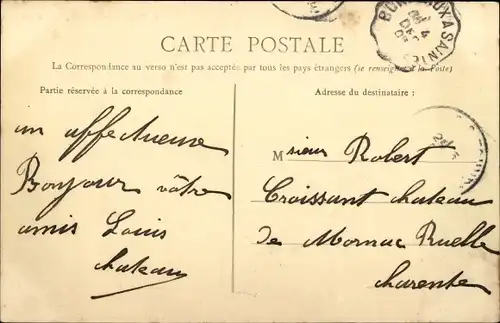 CARTE POSTALE
La Correspondance au verso n'est pas acceptée par tous les pays étrangers (se renseigner à la Poste)
Partie réservée à la correspondance
Adresse du destinataire :
un affectueux
Bonjour vôtre
amis Louis
chateau
Msieur Robert
Croissant chateau
de Mornac Ruelle
charente